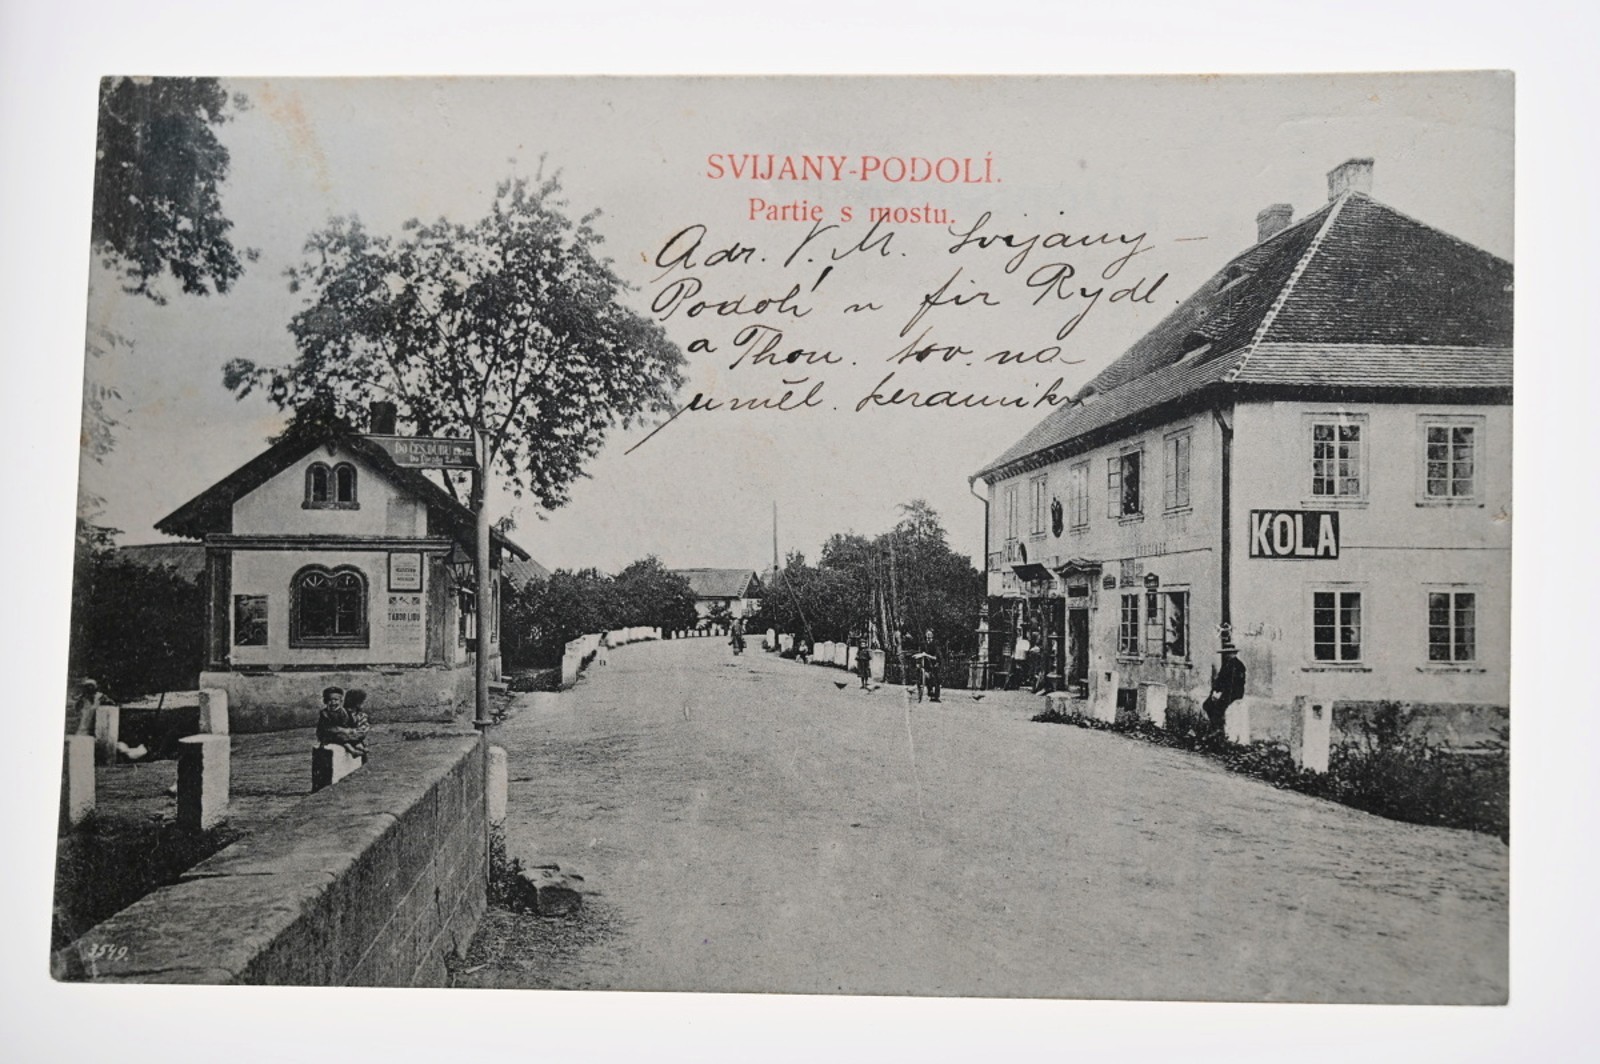 SVIJANY-PODOLÍ.
Partie s mostu.
Adr. V. M. Svijany –
Podolí u fir Rydl.
a Thon. tov. na
uměl. keramiku
DO ČES. DUBU
KOLA
TÁBOR LIDU
3549.